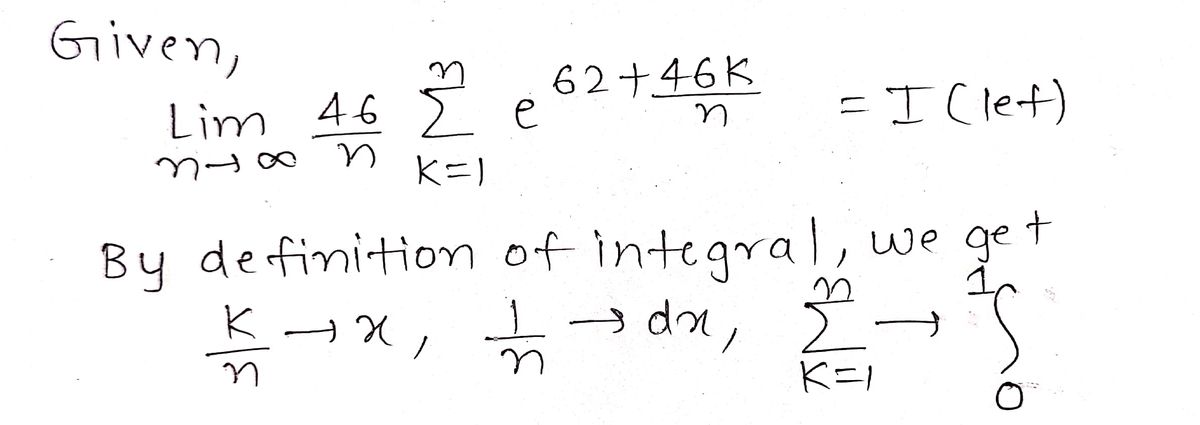 Given,
Lim n→∞ 46/n Σ k=1 n e^(62+46k/n) = I (let)
By definition of integral, we get
k/n → x, 1/n → dx, Σ k=1 n → ∫ 0 1